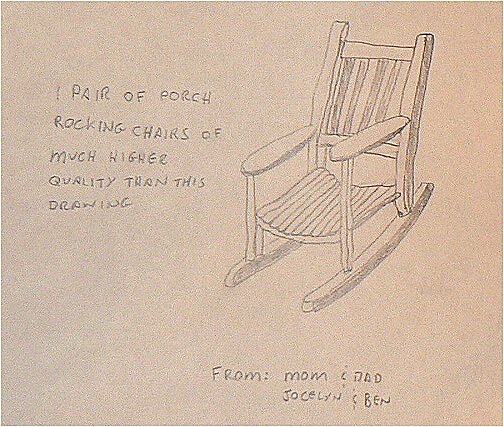 1 PAIR OF PORCH
ROCKING CHAIRS OF
MUCH HIGHER
QUALITY THAN THIS
DRAWING
FROM: MOM & DAD
JOCELYN & BEN